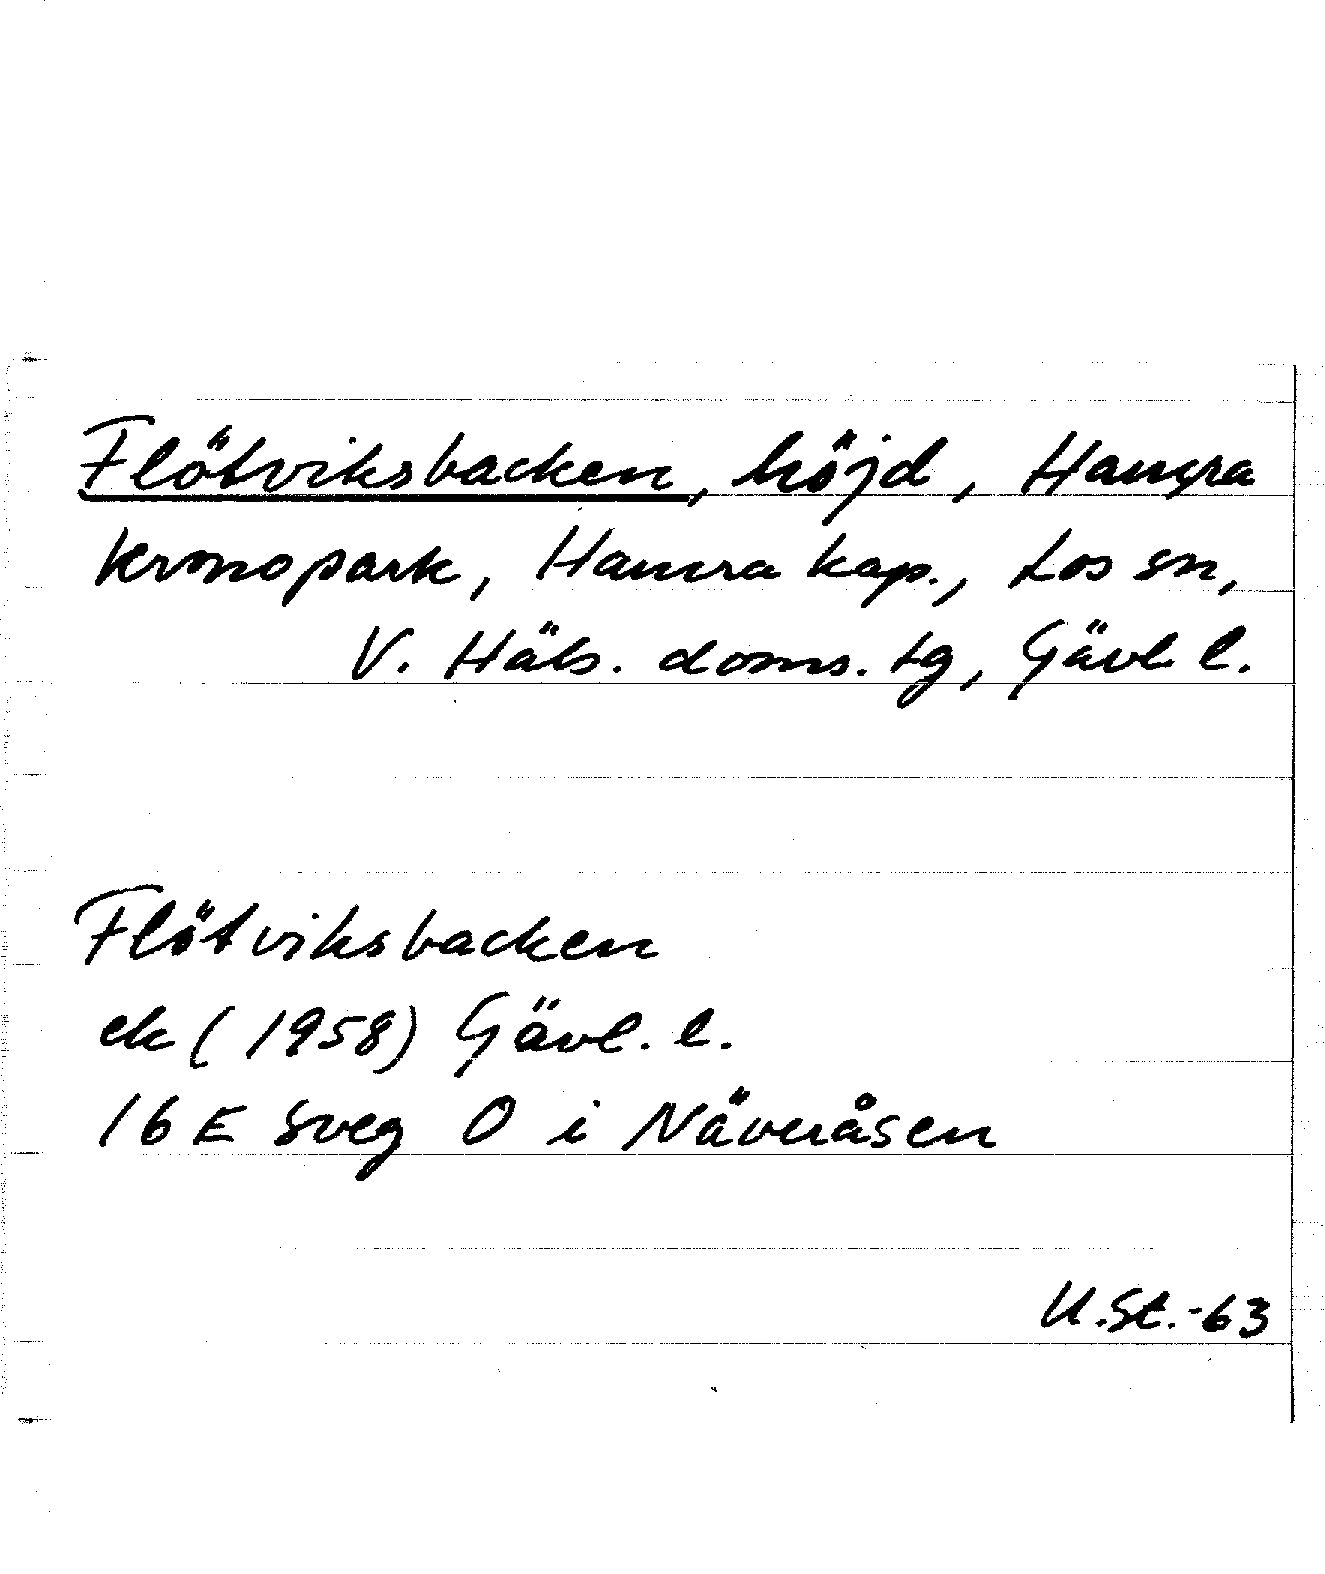 Flötviksbacken, höjd, Hamra
kronopark, Hamra kap., Los sn,
V. Häls. doms. tg, Gävl. l.
Flötviksbacken
ek (1958) Gävl. l.
16 E Sveg O i Näveråsen
U.St.-63